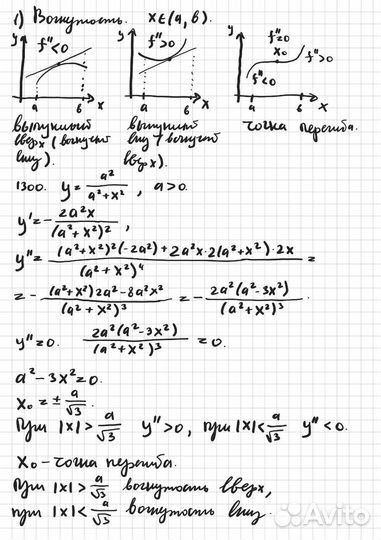 1) Вогнутость. x∈(a, b).
y f''<0 a b x
y f''>0 a b x
y f''=0 x₀ f''>0 f''<0 a b x
выпуклый вверх (вогнутый вниз).
выпуклый вниз (вогнутый вверх).
точка перегиба.
1300. y = a²/(a²+x²), a>0.
y' = -2a²x/(a²+x²)²,
y'' = ((a²+x²)²(-2a²)+2a²x·2(a²+x²)·2x)/(a²+x²)⁴ =
= -((a²+x²)2a²-8a²x²)/(a²+x²)³ = -2a²(a²-3x²)/(a²+x²)³.
y''=0. 2a²(a²-3x²)/(a²+x²)³ = 0.
a²-3x²=0.
x₀ = ± a/√3.
При |x|> a/√3 y''>0, при |x|< a/√3 y''<0.
x₀ - точка перегиба.
При |x|> a/√3 вогнутость вверх,
при |x|< a/√3 вогнутость вниз.
Avito